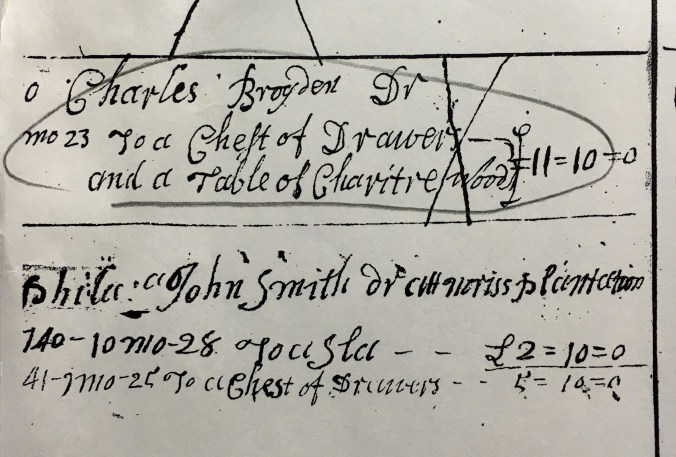 o Charles Brogden Dr
mo 23 To a Chest of Drawers
and a Table of Charitre wood £ = 11 = 10 = 0
Phila: a John Smith dr att noriss plantation
740 - 10 mo - 28 To a Sla - - £ 2 = 10 = 0
41 - 1 mo - 25 To a Chest of Drawers - - 5 = 10 = 0